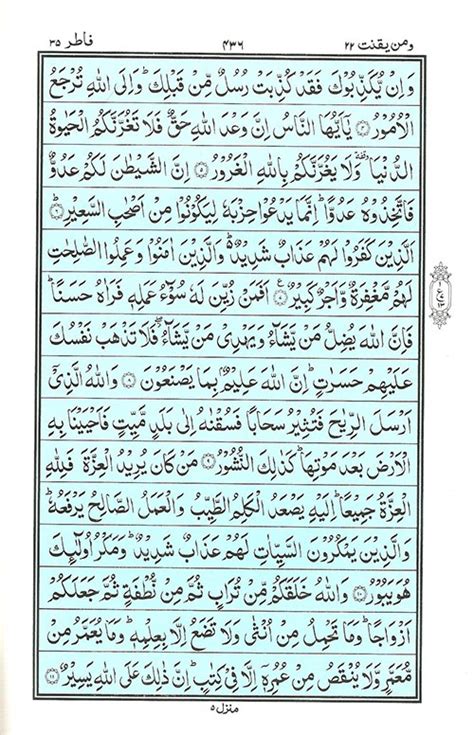 ومن يقنت ٢٢ ٤٣٦ فاطر ٣٥
وَاِنْ يُّكَذِّبُوْكَ فَقَدْ كُذِّبَتْ رُسُلٌ مِّنْ قَبْلِكَ ؕ وَاِلَى اللّٰهِ تُرْجَعُ
الْاُمُوْرُ ۝۴ يٰۤاَيُّهَا النَّاسُ اِنَّ وَعْدَ اللّٰهِ حَقٌّ فَلَا تَغُرَّنَّكُمُ الْحَيٰوةُ
الدُّنْيَا ۥ وَلَا يَغُرَّنَّكُمْ بِاللّٰهِ الْغَرُوْرُ ۝۵ اِنَّ الشَّيْطٰنَ لَكُمْ عَدُوٌّ
فَاتَّخِذُوْهُ عَدُوًّا ؕ اِنَّمَا يَدْعُوْا حِزْبَهٗ لِيَكُوْنُوْا مِنْ اَصْحٰبِ السَّعِيْرِ ۝۶
اَلَّذِيْنَ كَفَرُوْا لَهُمْ عَذَابٌ شَدِيْدٌ ؕ وَالَّذِيْنَ اٰمَنُوْا وَعَمِلُوا الصّٰلِحٰتِ
لَهُمْ مَّغْفِرَةٌ وَّاَجْرٌ كَبِيْرٌ ۝۷ اَفَمَنْ زُيِّنَ لَهٗ سُوْٓءُ عَمَلِهٖ فَرَاٰهُ حَسَنًا ؕ
فَاِنَّ اللّٰهَ يُضِلُّ مَنْ يَّشَآءُ وَيَهْدِيْ مَنْ يَّشَآءُ ۖ فَلَا تَذْهَبْ نَفْسُكَ
عَلَيْهِمْ حَسَرٰتٍ ؕ اِنَّ اللّٰهَ عَلِيْمٌۢ بِمَا يَصْنَعُوْنَ ۝۸ وَاللّٰهُ الَّذِيْۤ
اَرْسَلَ الرِّيٰحَ فَتُثِيْرُ سَحَابًا فَسُقْنٰهُ اِلٰى بَلَدٍ مَّيِّتٍ فَاَحْيَيْنَا بِهِ
الْاَرْضَ بَعْدَ مَوْتِهَا ؕ كَذٰلِكَ النُّشُوْرُ ۝۹ مَنْ كَانَ يُرِيْدُ الْعِزَّةَ فَلِلّٰهِ
الْعِزَّةُ جَمِيْعًا ؕ اِلَيْهِ يَصْعَدُ الْكَلِمُ الطَّيِّبُ وَالْعَمَلُ الصَّالِحُ يَرْفَعُهٗ ؕ
وَالَّذِيْنَ يَمْكُرُوْنَ السَّيِّاٰتِ لَهُمْ عَذَابٌ شَدِيْدٌ ؕ وَمَكْرُ اُولٰٓئِكَ
هُوَ يَبُوْرُ ۝۱۰ وَاللّٰهُ خَلَقَكُمْ مِّنْ تُرَابٍ ثُمَّ مِنْ نُّطْفَةٍ ثُمَّ جَعَلَكُمْ
اَزْوَاجًا ؕ وَمَا تَحْمِلُ مِنْ اُنْثٰى وَلَا تَضَعُ اِلَّا بِعِلْمِهٖ ؕ وَمَا يُعَمَّرُ مِنْ
مُّعَمَّرٍ وَّلَا يُنْقَصُ مِنْ عُمُرِهٖۤ اِلَّا فِيْ كِتٰبٍ ؕ اِنَّ ذٰلِكَ عَلَى اللّٰهِ يَسِيْرٌ ۝۱۱
منزل ۵